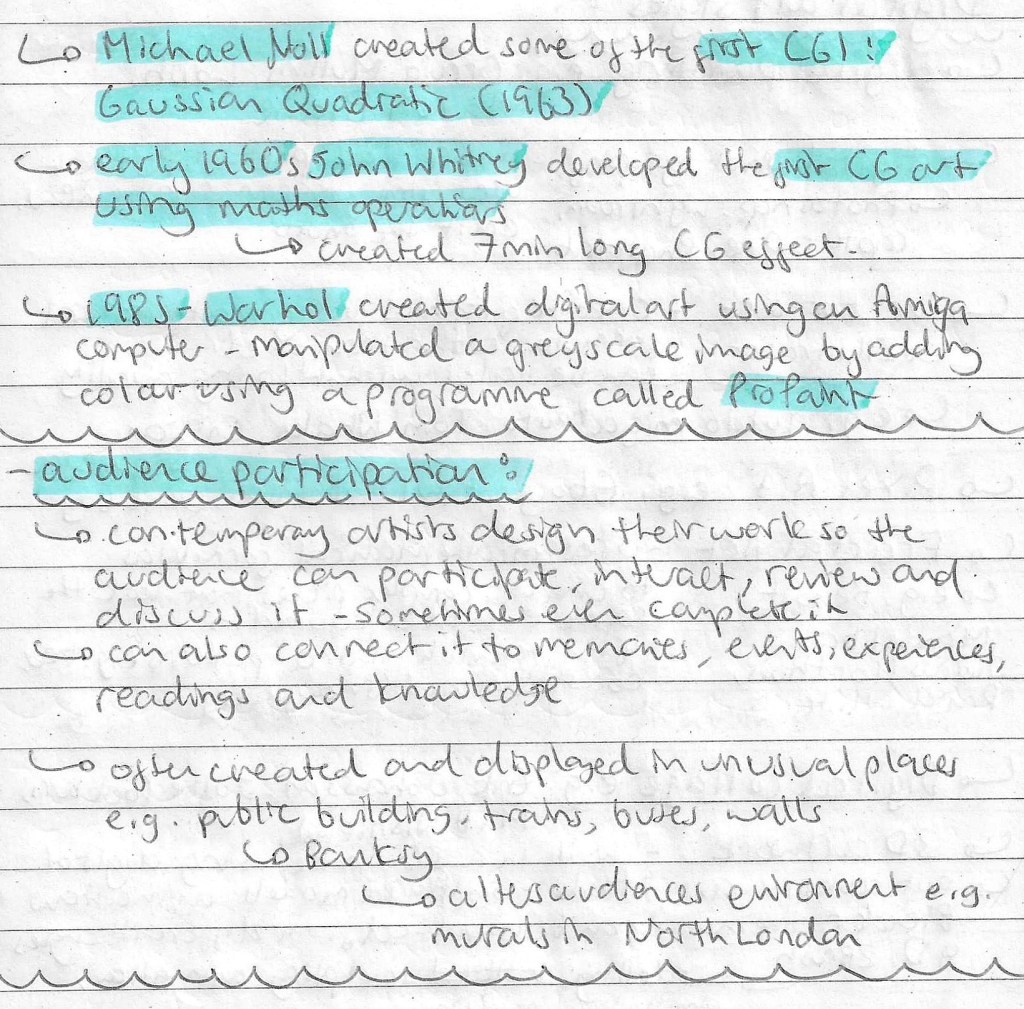 ↳ Michael Noll created some of the first CGI:
Gaussian Quadratic (1963)
↳ early 1960s John Whitney developed the first CG art
using maths operations
↳ created 7min long CG effect.
↳ 1985 - Warhol created digital art using an Amiga
computer - manipulated a greyscale image by adding
colour using a programme called ProPaint
- audience participation:
↳ contemporary artists design their work so the
audience can participate, interact, review and
discuss it - sometimes even complete it
↳ can also connect it to memories, events, experiences,
readings and knowledge
↳ often created and displayed in unusual places
e.g. public building, trains, buses, walls
↳ Banksy
↳ alters audiences environment e.g.
murals in North London